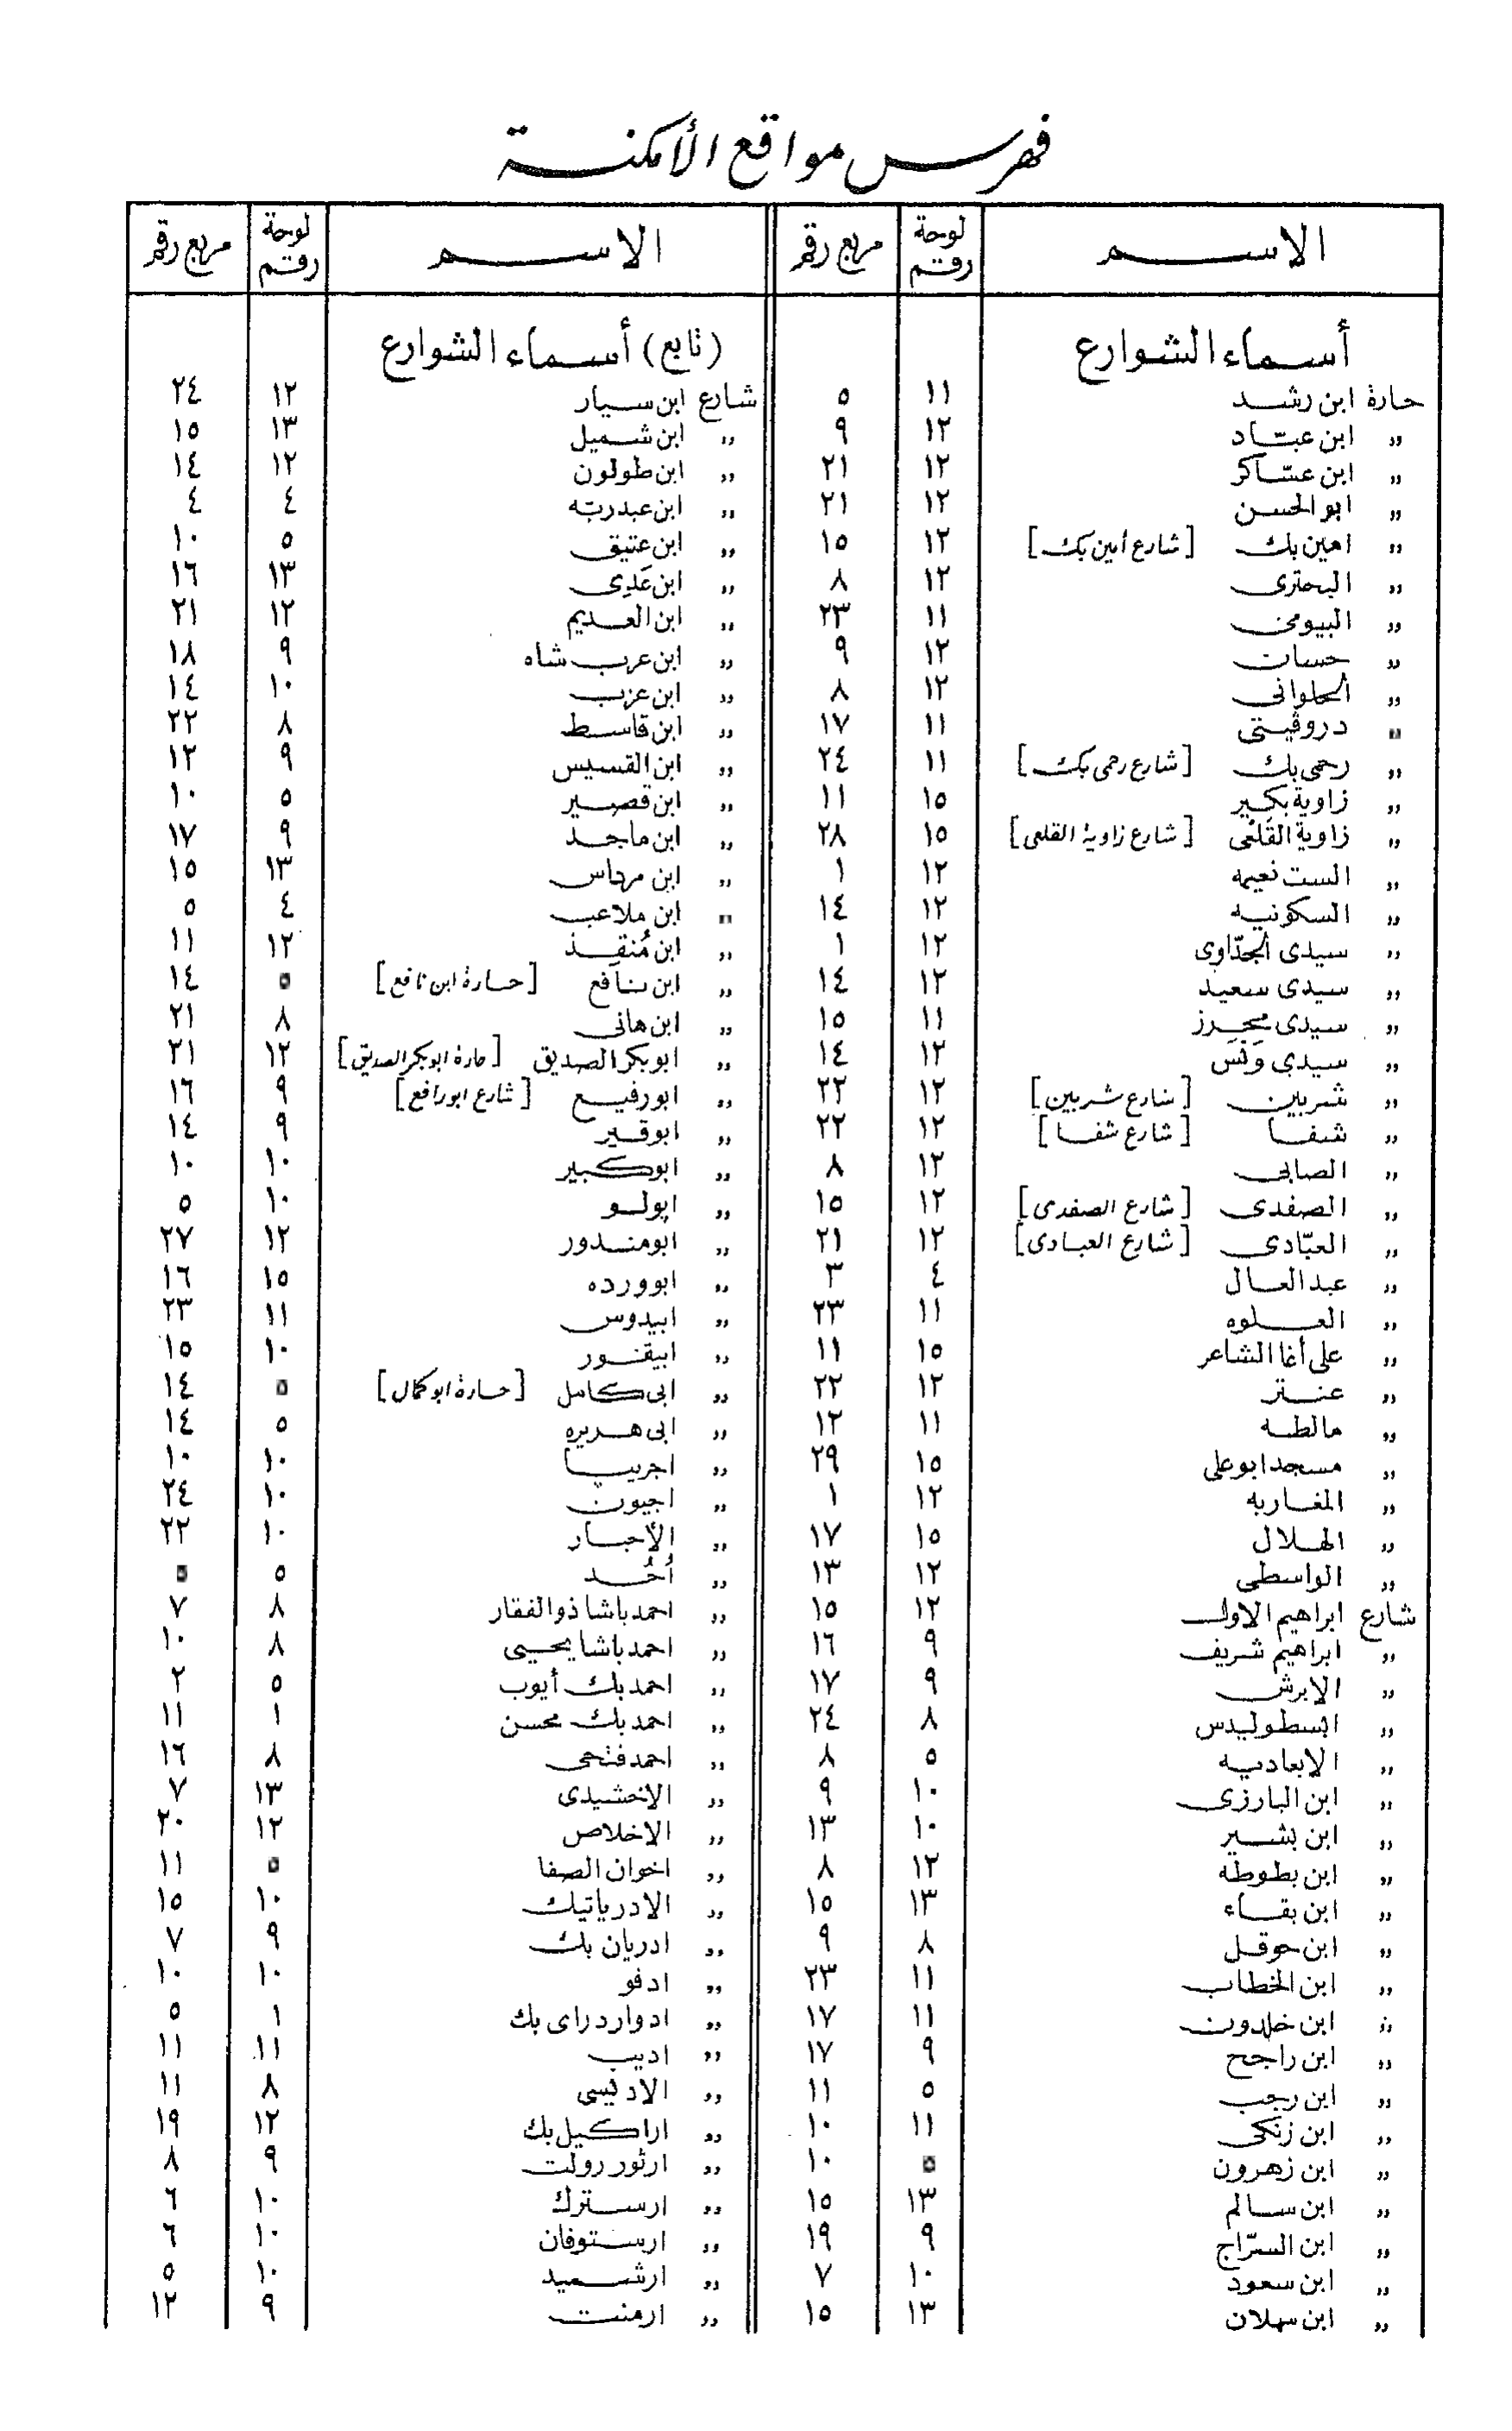 فهرس مواقع الأمكنة
الاسم لوحة رقم مربع رقم
أسماء الشوارع
حارة ابن رشد ١١ ٥
„ ابن عبّاد ١٢ ٩
„ ابن عسّاكر ١٢ ٢١
„ ابو الحسن ١٢ ٢١
„ امين بك [شارع أمين بك] ١٢ ١٥
„ البحترى ١٢ ٨
„ البيومى ١١ ٢٣
„ حسان ١٢ ٩
„ الحلوانى ١٢ ٨
„ دروڤيتى ١١ ١٧
„ رحمى بك [شارع رحمى بك] ١١ ٢٤
„ زاوية بكير ١٥ ١١
„ زاوية القلعى [شارع زاوية القلعى] ١٥ ٢٨
„ الست نعيمه ١٢ ١
„ السكونيه ١٢ ١٤
„ سيدى الجدّاوى ١٢ ١
„ سيدى سعيد ١٢ ١٤
„ سيدى محرز ١١ ١٥
„ سيدى وَنَسَ ١٢ ١٤
„ شربين [شارع شربين] ١٢ ٢٢
„ شفا [شارع شفا] ١٢ ٢٢
„ الصابى ١٢ ٨
„ الصفدى [شارع الصفدى] ١٢ ١٥
„ العبّادى [شارع العبادى] ١٢ ٢١
„ عبد العال ٤ ٣
„ العلوه ١١ ٢٣
„ على أغا الشاعر ١٥ ١١
„ عنتر ١٢ ٢٢
„ مالطه ١١ ١٢
„ مسجد ابو على ١٥ ٢٩
„ المغاربه ١٢ ١
„ الهلال ١٥ ١٧
„ الواسطى ١٢ ١٣
شارع ابراهيم الاول ١٢ ١٥
„ ابراهيم شريف ٩ ١٦
„ الابرش ٩ ١٧
„ ابسطوليدس ٨ ٢٤
„ الابعاديه ٥ ٨
„ ابن البارزى ١٠ ٩
„ ابن بشير ١٠ ١٣
„ ابن بطوطه ١٢ ٨
„ ابن بقاء ١٣ ١٥
„ ابن حوقل ٨ ٩
„ ابن الخطاب ١١ ٢٣
„ ابن خلدون ١١ ١٧
„ ابن راجح ٩ ١٧
„ ابن رجب ٥ ١١
„ ابن زنكى ١١ ١٠
„ ابن زهرون ٥ ١٠
„ ابن سالم ١٣ ١٥
„ ابن السرّاج ٩ ١٩
„ ابن سعود ١٠ ٧
„ ابن سهلان ١٣ ١٥
الاسم لوحة رقم مربع رقم
(تابع) أسماء الشوارع
شارع ابن سيار ١٢ ٢٤
„ ابن شميل ١٣ ١٥
„ ابن طولون ١٢ ١٤
„ ابن عبد ربّه ٤ ٤
„ ابن عتيق ٥ ١٠
„ ابن عَدِى ١٣ ١٦
„ ابن العديم ١٢ ٢١
„ ابن عرب شاه ٩ ١٨
„ ابن عزب ١٠ ١٤
„ ابن قاسط ٨ ٢٢
„ ابن القسيس ٩ ١٢
„ ابن قصير ٥ ١٠
„ ابن ماجد ٩ ١٧
„ ابن مرداس ١٣ ١٥
„ ابن ملاعب ٤ ٥
„ ابن مُنقذ ١٢ ١١
„ ابن نافع [حارة ابن نافع] ٥ ١٤
„ ابن هانى ٨ ٢١
„ ابو بكر الصديق [حارة ابو بكر الصديق] ١٢ ٢١
„ ابو رفيع [شارع ابو رافع] ٩ ١٦
„ ابو قير ٩ ١٤
„ ابو كبير ١٠ ١٠
„ ابولو ١٠ ٥
„ ابو مندور ١٢ ٢٧
„ ابو ورده ١٥ ١٦
„ ابيدوس ١١ ٢٣
„ ابيقور ١٠ ١٥
„ ابى كامل [حارة ابو كمال] ٥ ١٤
„ ابى هريره ٥ ١٤
„ اجريبا ١٠ ١٠
„ اجيون ١٠ ٢٤
„ الأحبار ١٠ ٢٢
„ أُحُد ٥ ٥
„ احمد باشا ذو الفقار ٨ ٧
„ احمد باشا يحيى ٨ ١٠
„ احمد بك أيوب ٥ ٢
„ احمد بك محسن ١ ١١
„ احمد فتحى ٨ ١٦
„ الاخشيدى ١٣ ٧
„ الاخلاص ١٢ ٢٠
„ اخوان الصفا ٥ ١١
„ الادرياتيك ١٠ ١٥
„ ادريان بك ٩ ٧
„ ادفو ١٠ ١٠
„ ادوارد راى بك ١ ٥
„ اديب ١١ ١١
„ ٨ ١١
„ اراكيل بك ١٢ ١٩
„ ارثور رولت ٩ ٨
„ ارسترك ١٠ ٦
„ ارستوفان ١٠ ٦
„ ارشميد ١٠ ٥
„ ارمنت ٩ ١٢